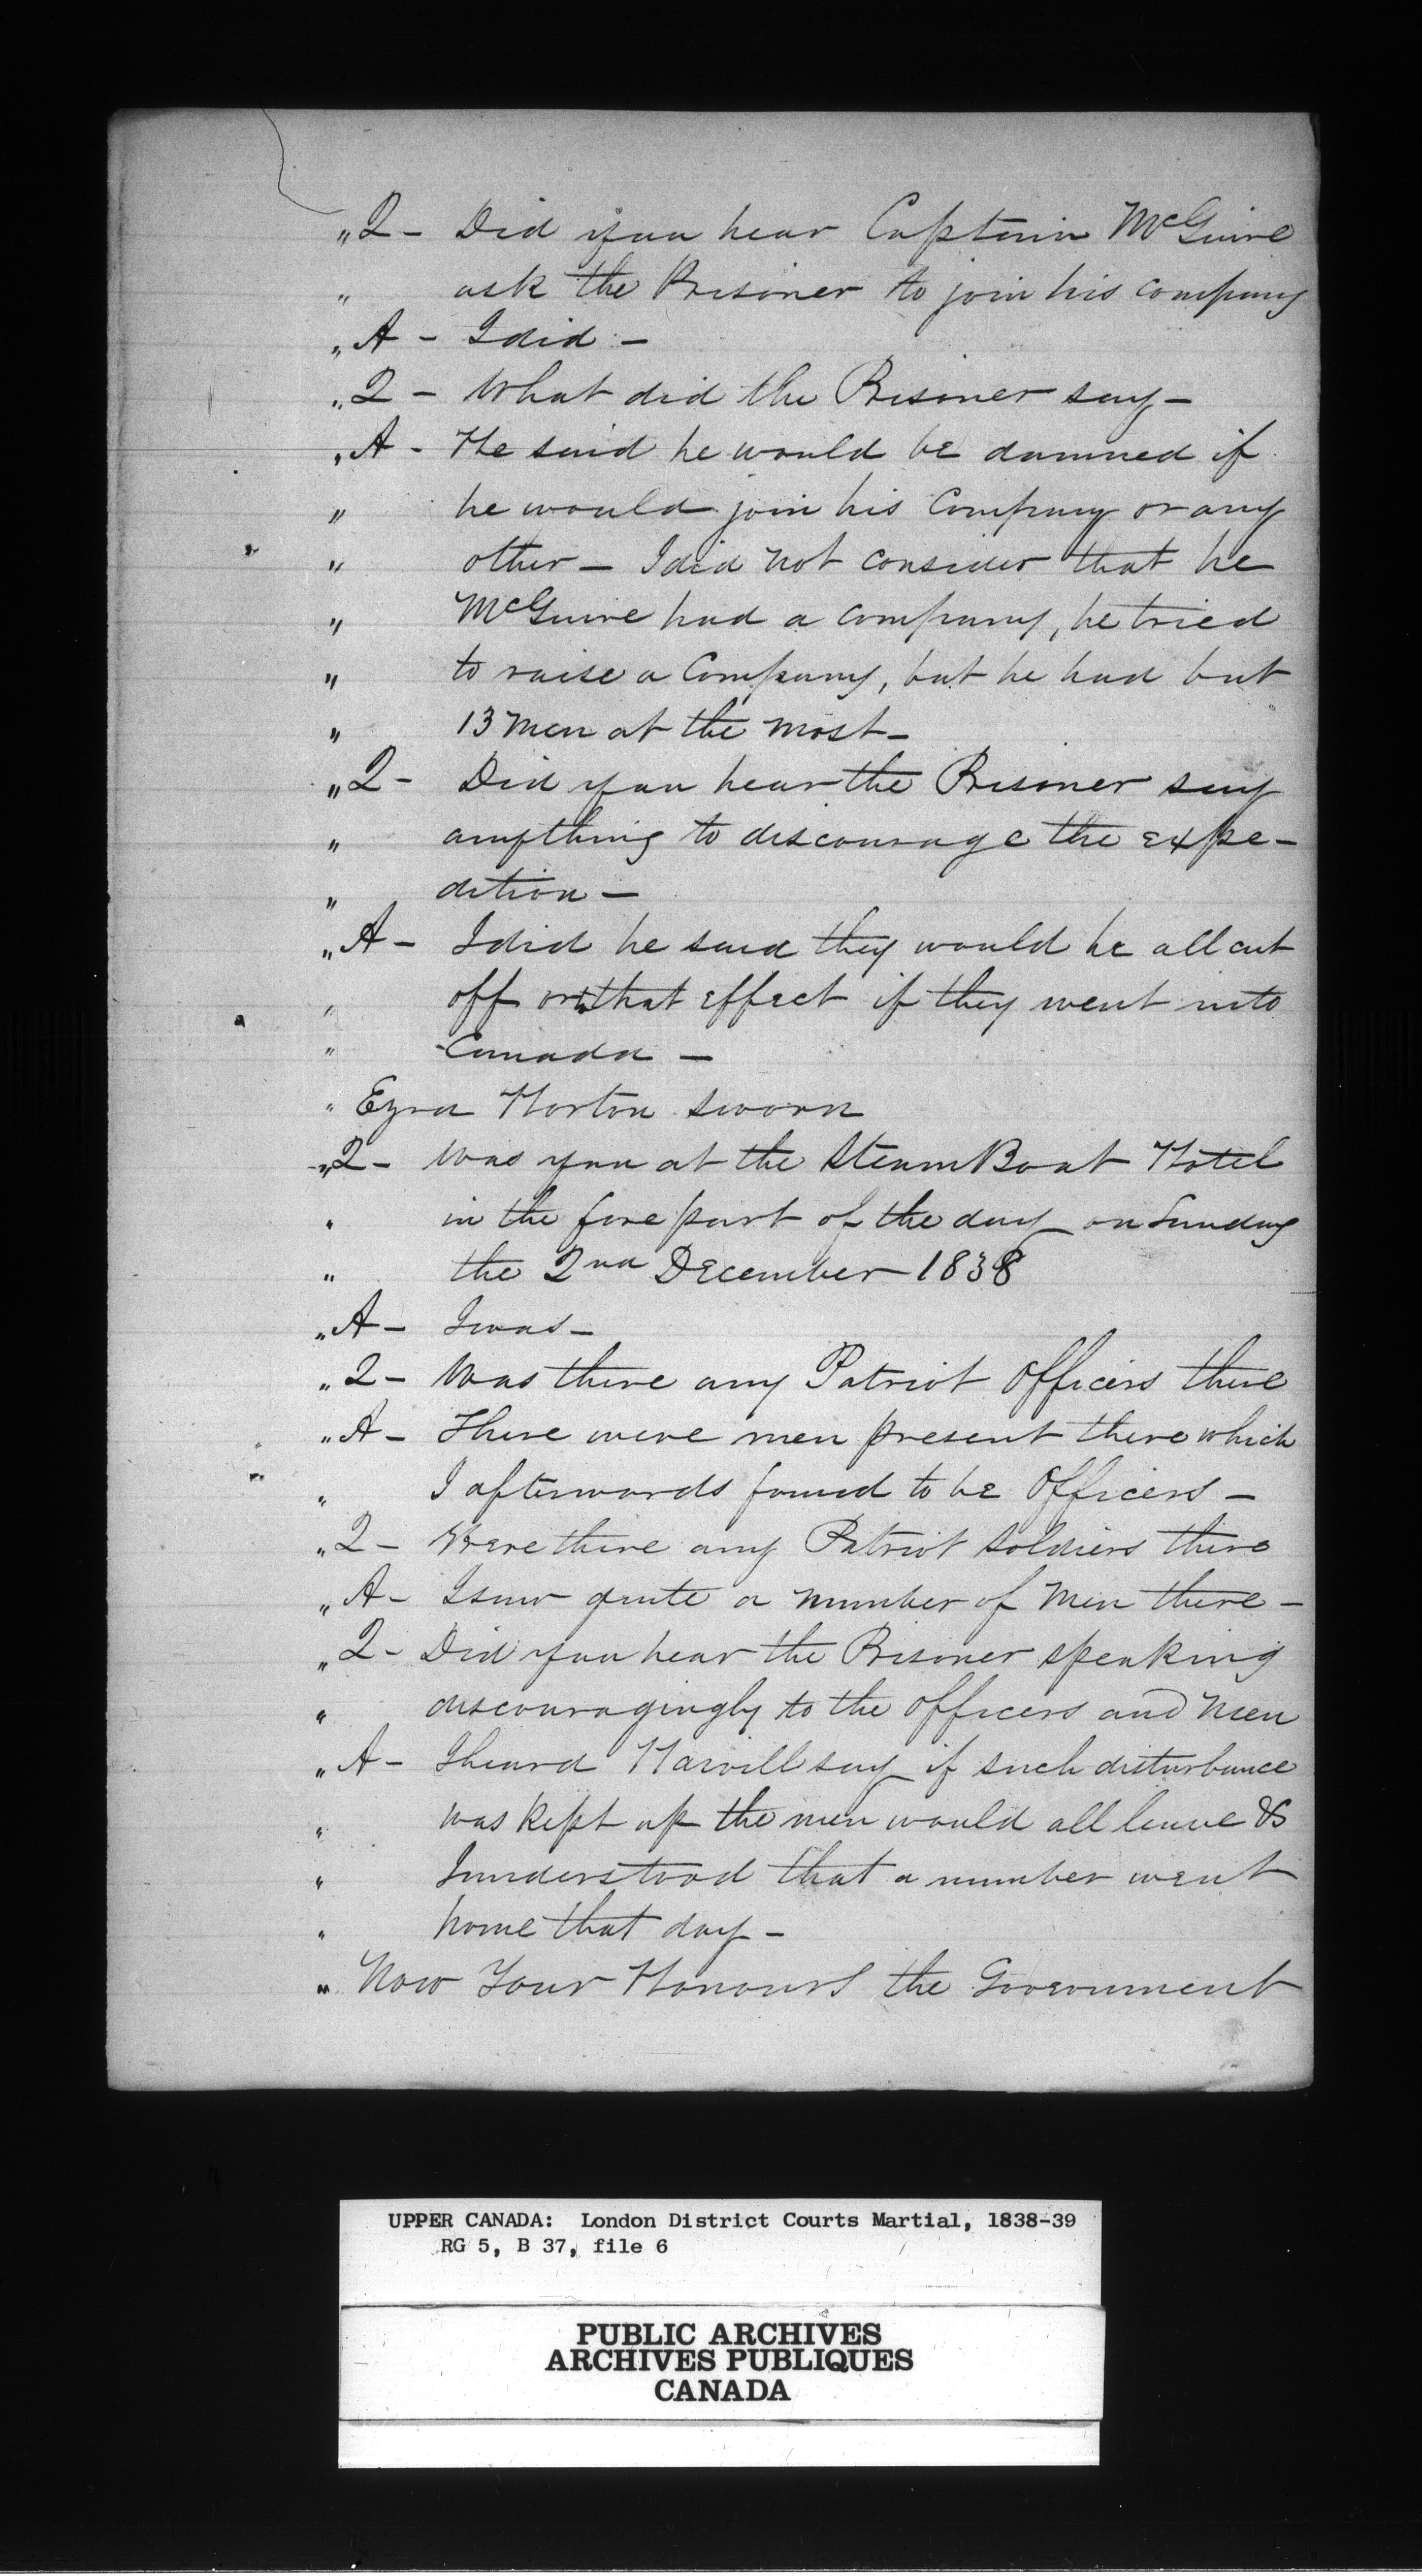 „ Q - Did you hear Captain McGuire
„ ask the Prisoner to join his company
„ A - I did -
„ Q - What did the Prisoner say -
„ A - He said he would be damned if
„ he would join his Company or any
„ other - I did not consider that he
„ McGuire had a company, he tried
„ to raise a Company, but he had but
„ 13 men at the most -
„ Q - Did you hear the Prisoner say
„ anything to discourage the expe-
„ dition -
„ A - I did he said they would be all cut
„ off or that effect if they went into
„ Canada -
„ Ezra Horton sworn
„ Q - Was you at the Steam Boat Hotel
„ in the fore part of the day on Sunday
„ the 2nd December 1838
„ A - I was -
„ Q - Was there any Patriot Officers there
„ A - There were men present there which
„ I afterwards found to be Officers -
„ Q - Were there any Patriot Soldiers there
„ A - I saw quite a number of Men there -
„ Q - Did you hear the Prisoner speaking
„ discouragingly to the Officers and Men
„ A - I heard say if such disturbance
„ was kept up the men would all leave &
„ I understood that a number went
„ home that day -
„ Now Your Honours the Government
UPPER CANADA: London District Courts Martial, 1838-39
RG 5, B 37, file 6
PUBLIC ARCHIVES
ARCHIVES PUBLIQUES
CANADA